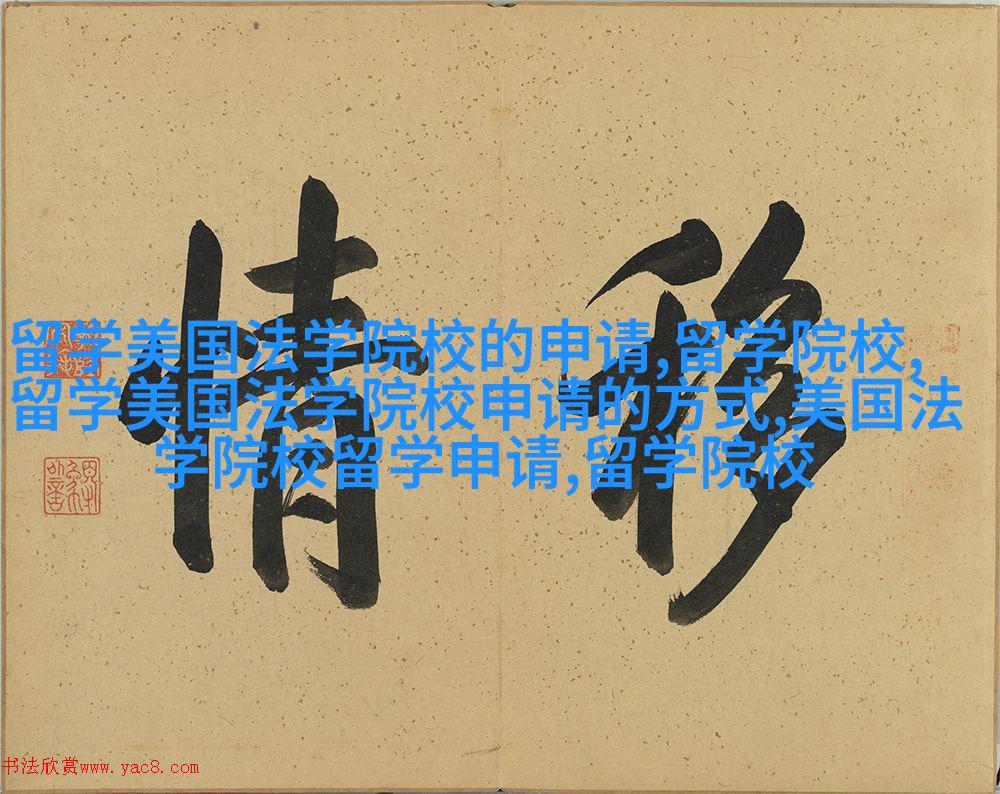 移情
留学美国法学院校的申请,留学院校,
留学美国法学院校申请的方式,美国法
学院校留学申请,留学院校
书法欣赏www.yac8.com